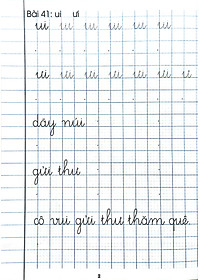 Bài 41: ui ưi
ui ui ui ui ui ui
ưi ưi ưi ưi ưi ưi ưi
dãy núi
gửi thư
cô vui gửi thư thăm quê.